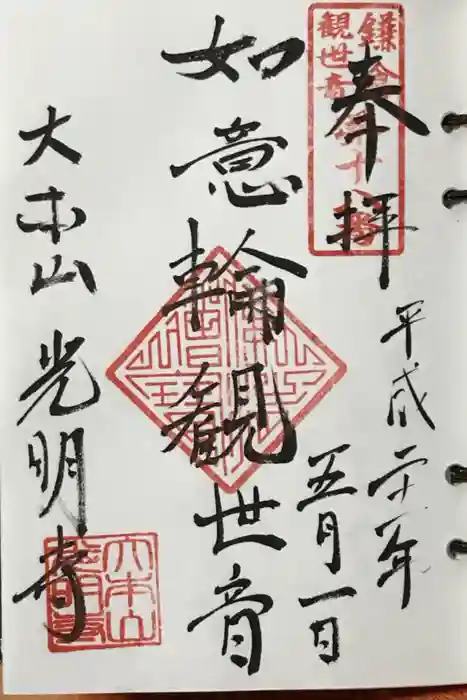 奉拝
平成二十一年
五月一日
如意輪観世音
大本山 光明寺
鎌倉
観世音
第十八番
大本山
光明寺